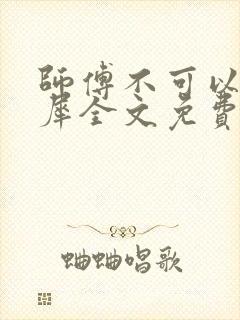 師傅不可以
犀全文免費
蛐蛐唱歌